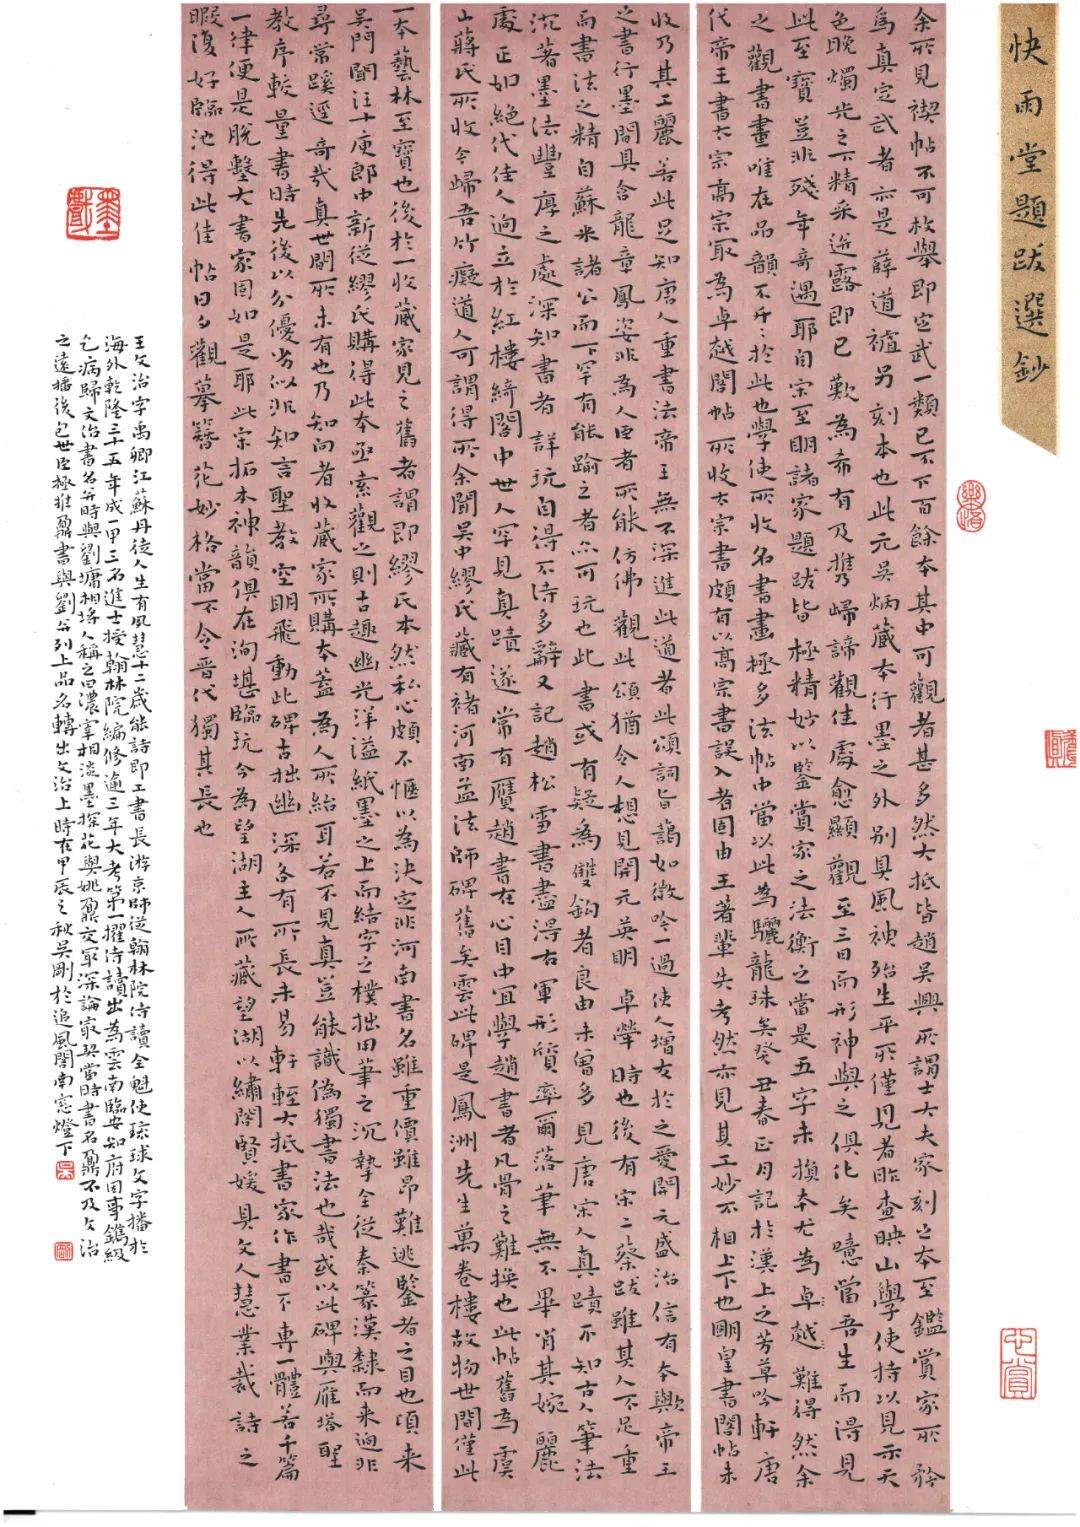 快雨堂題跋選鈔
余所見禊帖不可枚舉即定武一類已不下百餘本其中可觀者甚多然大抵皆趙吳興所謂士大夫家刻之本至鑑賞家所矜
為真定武者亦是薛道祖另刻本也此元吳炳藏本行墨之外別具風神殆生平所僅見者昨查映山學使持以見示天
色晚燭光之下精采迸露即已歎為希有乃攜歸諦觀佳處愈顯觀至三日而形神與之俱化矣噫當吾生而得見
此至寶豈非殘年奇遇耶自宋至明諸家題跋皆極精妙以鑒賞家之法衡之當是五字未損本尤為卓越難得然余
之觀書畫唯在品韻不斤斤於此也學使所收名書畫極多法帖中當以此為驪龍珠矣癸丑春正月記於漢上之芳草吟軒唐
代帝王書太宗高宗最為卓越閣帖所收太宗書頗有以高宗書誤入者固由王著輩失考然亦見其工妙不相上下也明皇書閣帖未
收乃其工麗若此足知唐人重書法帝王無不深造此道者此頌詞旨藹如微吟一過使人增友於之愛開元盛治信有本與帝王
之書行墨間具含龍章鳳姿非為人臣者所能仿佛觀此頌猶令人想見開元英明卓犖時也後有宋二蔡跋雖其人不足重
而書法之精自蘇米諸公而下罕有能踰之者亦可玩也此書或有疑為雙鉤者良由未曾多見唐宋人真蹟不知古人筆法
沉著墨法豐厚之處深知書者詳玩自得不待多辭又記趙松雪書盡得右軍形質率爾落筆無不畢肖其婉麗
處正如絕代佳人迥立於紅樓綺閣中世人罕見真蹟遂常有贋趙書在心目中宜學趙書者凡骨之難換也此帖舊為虞
山蔣氏所收今歸吾竹癡道人可謂得所余聞吳中繆氏藏有褚河南孟法師碑舊矣雲此碑是鳳洲先生萬卷樓故物世間僅此
一本藝林至寶也後於一收藏家見之舊者謂即繆氏本然私心頗不愜以為決定非河南書名雖重價雖昂難逃鑒者之目也頃來
吳門聞汪十庚郎中新從繆氏購得此本亟索觀之則古趣幽光洋溢紙墨之上而結字之樸拙用筆之沉摯全從秦篆漢隸而來迥非
尋常蹊逕奇哉真世間所未有也乃知向者收藏家所購本蓋為人所紿耳若不見真豈能識偽獨書法也哉或以此碑與雁塔聖
教序較量書時先後以分優劣似非知言聖教空明飛動此碑古拙幽深各有所長未易軒輊大抵書家作書不專一體若千篇
一律便是脫墼大書家固如是耶此宋拓本神韻俱在洵堪臨玩今為望湖主人所藏望湖以繡閣賢媛具文人慧業裁詩之
暇復好臨池得此佳帖日夕觀摹簪花妙格當不令晉代獨其長也
王文治字禹卿江蘇丹徒人生有夙慧十二歲能詩即工書長游京師從翰林院侍讀全魁使琉球文字播於
海外乾隆三十五年成一甲三名進士授翰林院編修逾三年大考第一擢侍讀出為雲南臨安知府因事鐫級
乞病歸文治書名并時與劉墉相埒人稱之曰濃宰相淡墨探花與姚鼐交最深論最契當時書名鼐不及文治
之遠播後包世臣極推鼐書與劉并列上品名轉出文治上時在甲辰之秋吳剛於追風閣南窗燈下
心賞